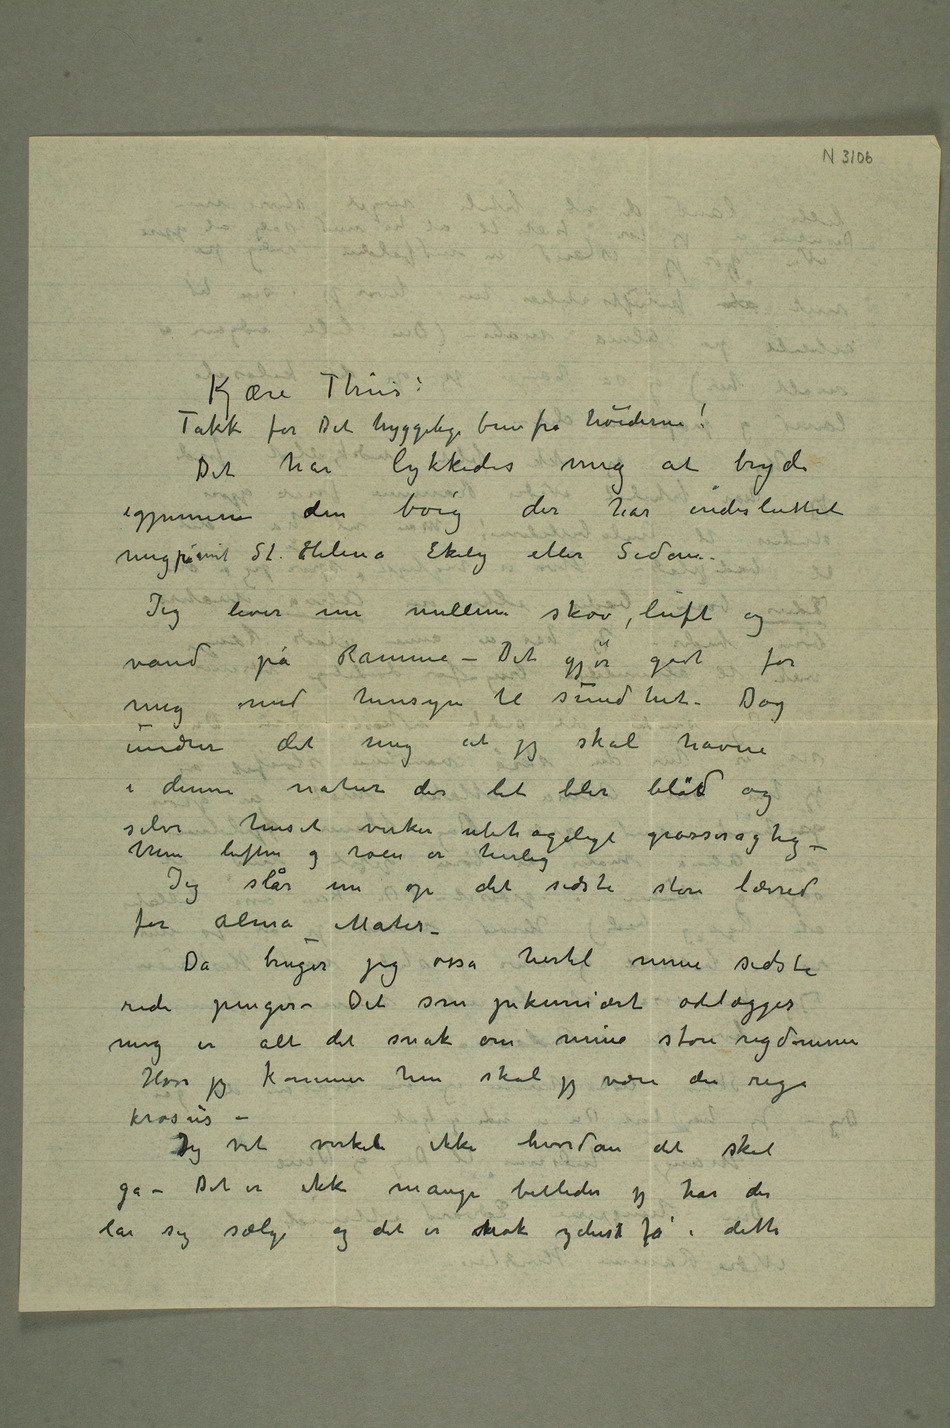 N 3106
Kjære Thiis!
Takk for Det hyggelige brev fra höiderne!
Det har lykkedes mig at bryde
igjennem den böig der har indesluttet
mig på mit St. Helena Ekely eller Sedan.
Jeg lever nu mellem skov, luft og
vand på Ramme – Det gjör godt for
mig med hensyn til sundhet. Dog
undrer det mig at jeg skal havne
i denne natur der let blir blöd og
selve huset virker ubehageligt grosseragtig –
Men luften og roen er herlig
Jeg slår nu op det sidste store lærred
for alma Mater –
Da bruger jeg også hertil mine sidste
rede penger – Det som pekuniært ödelægger
mig er alt det snak om mine store rigdommer
Hvor jeg kommer hen skal jeg være den rige
krösus –
Jeg vet virkelig ikke hvordan det skal
gå – Det er ikke mange billeder jeg har der
lar sig sælge og det er nok yderst få i dette